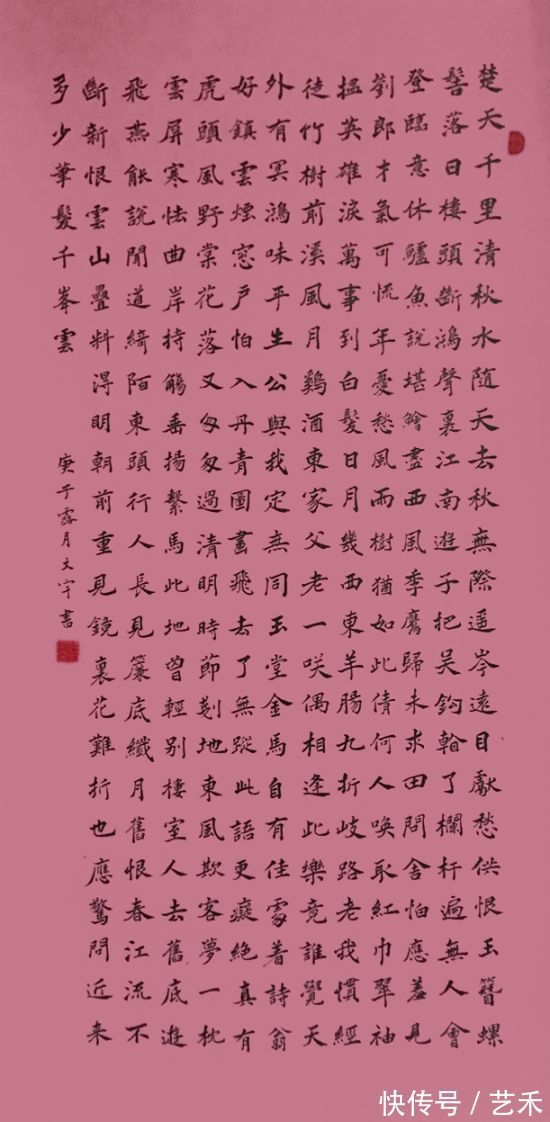 楚天千里清秋水隨天去秋無際遥岑遠目獻愁供恨玉簪螺
髻落日樓頭斷鴻聲裏江南遊子把吴鈎看了欄杆遍無人會
登臨意休鱸魚說堪鱠盡西風季鷹歸未求田問舍怕應羞見
劉郎才氣可流年憂愁風雨樹猶如此倩何人喚取紅巾翠袖
揾英雄淚萬事到白髮日月幾西東羊腸九折岐路老我慣經
徒竹樹前溪風月鷄酒東家父老一咲偶相逢此樂竟誰覺天
外有冥鴻味平生公與我定無同玉堂金馬自有佳處著詩翁
好鎮雲煙窓户怕入丹青圖畫飛去了無蹤此語更癡絶真有
虎頭風野棠花落又匆匆過清明時節剗地東風欺客夢一枕
雲屏寒怯曲岸持觴垂揚繫馬此地曾輕别樓室人去舊底遊
飛燕能說聞道綺陌東頭行人長見簾底纖月舊恨春江流不
斷新恨雲山疊料得明朝前重見鏡裏花難折也應驚問近来
多少華髮千峯雲
庚子露月文宇書
快传号/艺禾